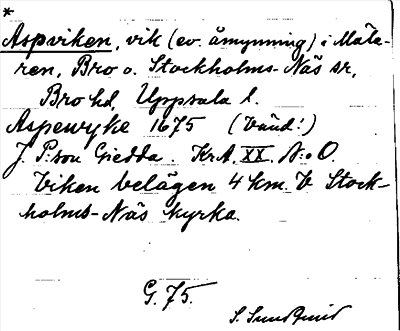 *
Aspviken, vik (ev. åmynning) i Mäla-
ren, Bro o. Stockholms-Näs sr,
Bro hd, Uppsala l.
Aspewyke 1675 (Vaud!)
J. P:son Giedda. KrA. XX. N:o O.
Viken belägen 4 km. V Stock-
holms-Näs kyrka.
G. 75.
S.